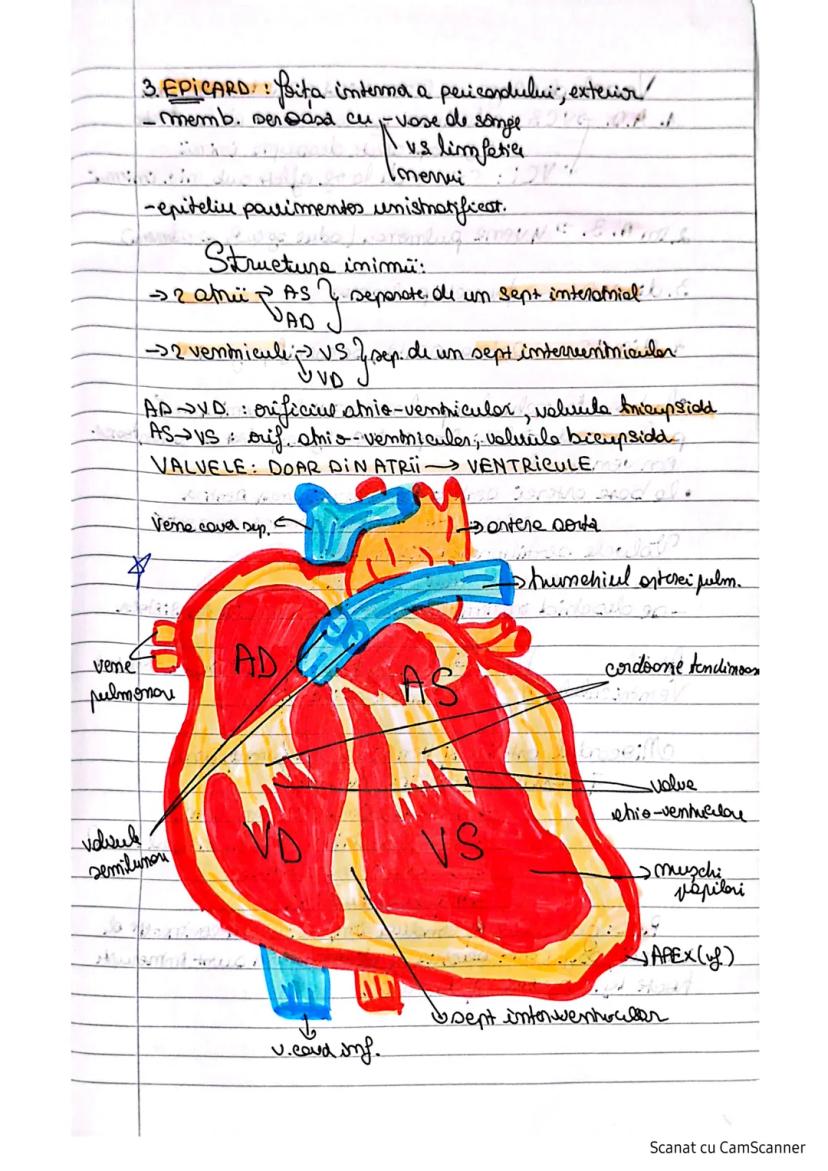 3. EPICARD: foița internă a pericardului, exterior!
- memb. seroasă cu - vase de sânge
vs limfatice
nervi
- epiteliu pavimentos unistratificat.
Structura inimii:
→ 2 atrii → AS } separate de un sept interatrial
AD
→ 2 ventricule → VS } sep. de un sept interventricular
VD
AD → VD : orificiul atrio-ventricular, valvula tricuspidă
AS → VS : orif. atrio-ventricular, valvula bicuspidă
VALVELE: DOAR DIN ATRII → VENTRICULE
Vena cavă sup.
artera aortă
trunchiul arterei pulm.
vene
pulmonare
AD
AS
cordoane tendinoase
valve
atrio-ventriculare
valvule
semilunare
VD
VS
mușchi
papilari
APEX (vf)
sept interventricular
v. cavă inf.
Scanat cu CamScanner